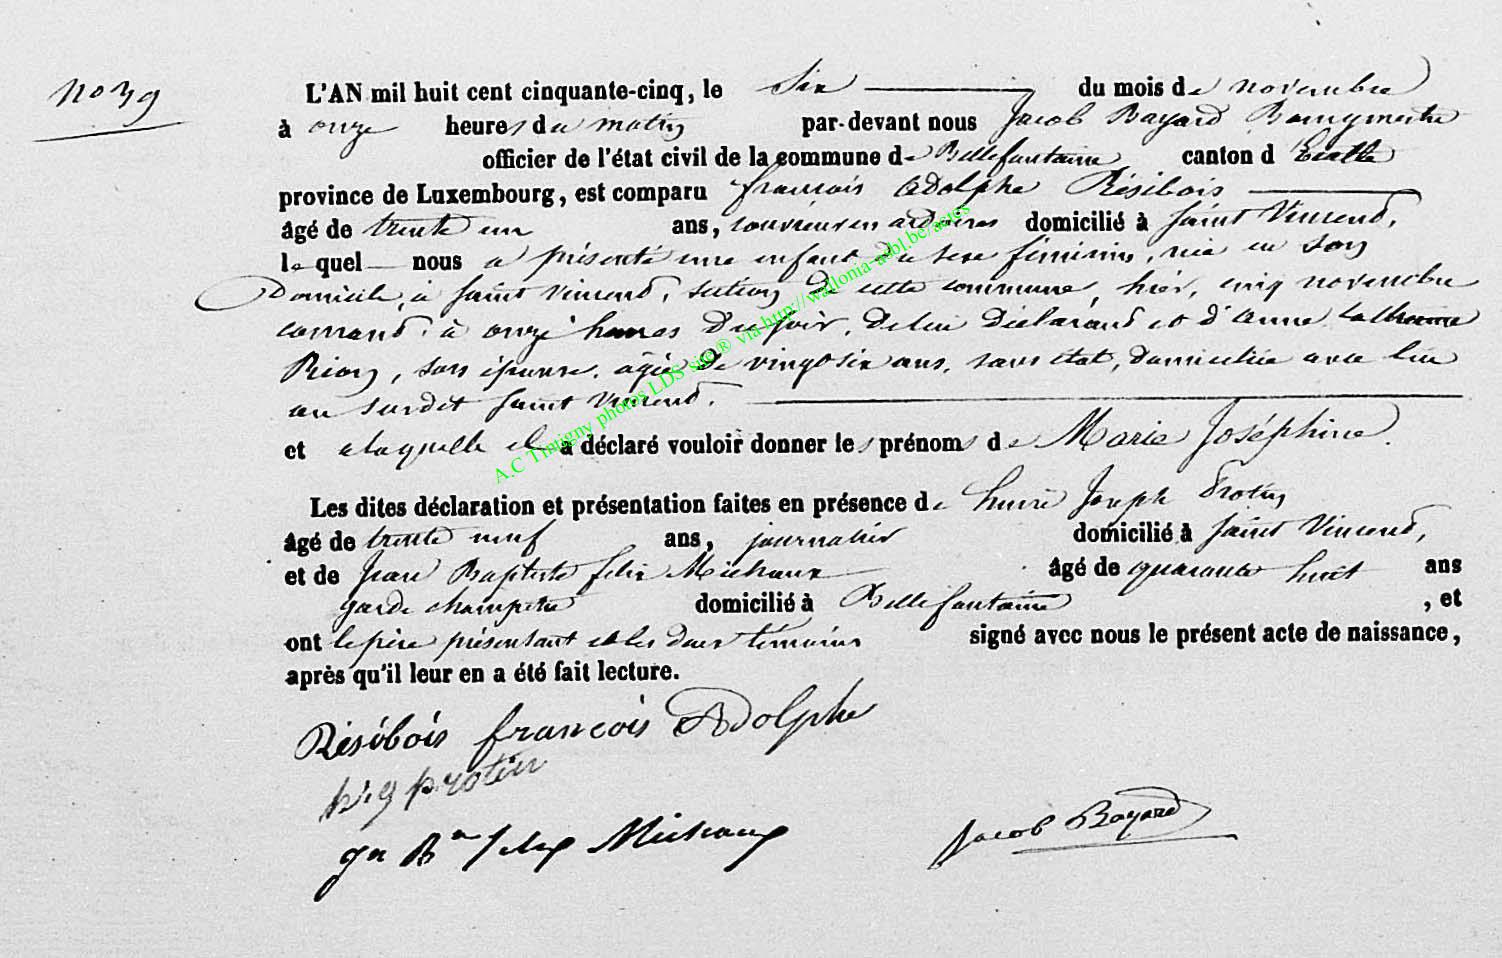 No 39
L'AN mil huit cent cinquante-cinq, le Six du mois de novembre
à onze heures du matin par-devant nous Jacob Bayard Bourgmestre
officier de l'état civil de la commune de Bellefontaine canton d'Etalle
province de Luxembourg, est comparu françois Adolphe Résibois
âgé de trente un ans, ouvrier en ardoises domicilié à Saint Vincend,
lequel nous a présenté une enfant du sexe féminin, née en son
Domicile, à Saint Vincend, section de cette commune, hier, cinq novembre
courand, à onze heures Du soir, de lui Déclarand et d'Anne Catherine
Rion, son épouse, âgée de vingt six ans, sans état, domiciliée avec lui
au surdit Saint Vincend.
et a laquelle il a déclaré vouloir donner les prénoms de Marie Joséphine.
Les dites déclaration et présentation faites en présence de henri Joseph Protin
âgé de trente neuf ans, journalier domicilié à Saint Vincend,
et de Jean Baptiste felix Michaux âgé de quarante huit ans
garde champetre domicilié à Bellefontaine, et
ont le père présentant et les deux témoins signé avec nous le présent acte de naissance,
après qu'il leur en a été fait lecture.
Résibois françois Adolphe
protin
Jn Bte felix Michaux
Jacob Bayard
A.C Tintigny photos LDS site® via http://wallonia-asbl.be/actes